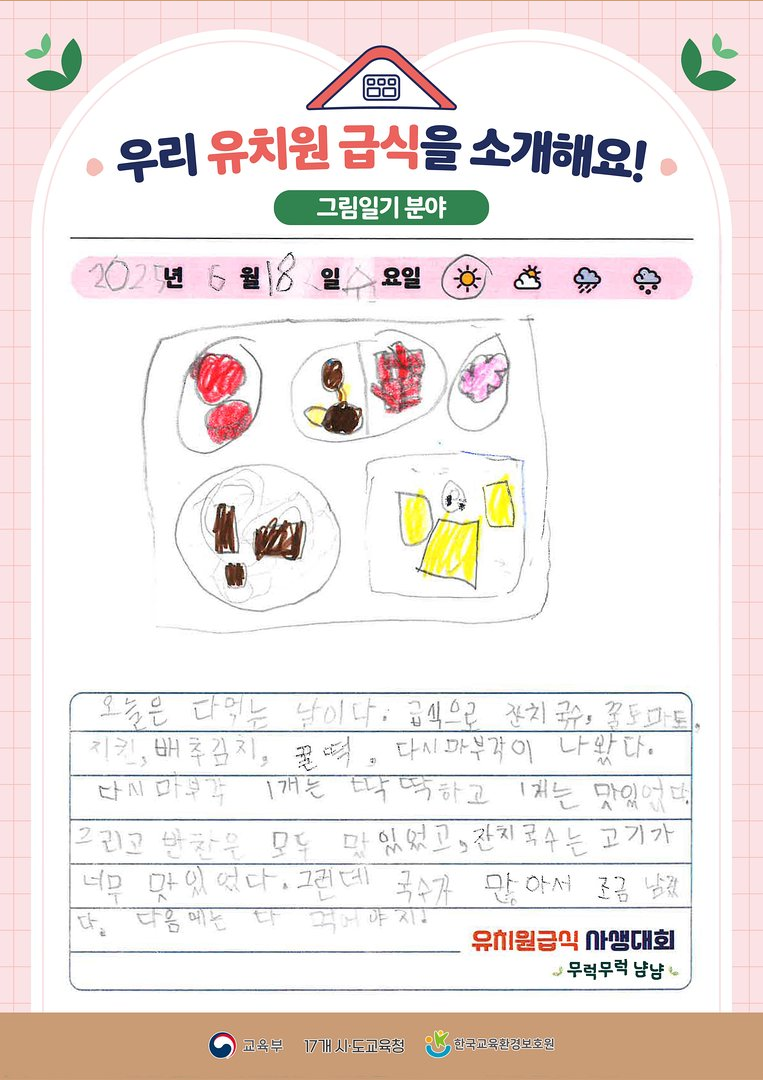 우리 유치원 급식을 소개해요!
그림일기 분야
2025년 6월 18일 수요일
오늘은 다먹는 날이다. 급식으로 잔치국수, 꿀토마토,
치킨, 배추김치, 꿀떡, 다시마부각이 나왔다.
다시마부각 1개는 딱딱하고 1개는 맛있었다.
그리고 반찬은 모두 맛있었고, 잔치국수는 고기가
너무 맛있었다. 그런데 국수가 많아서 조금 남겼
다. 다음에는 다 먹어야지!
유치원급식 사생대회
무럭무럭 냠냠
교육부 17개 시·도교육청 한국교육환경보호원